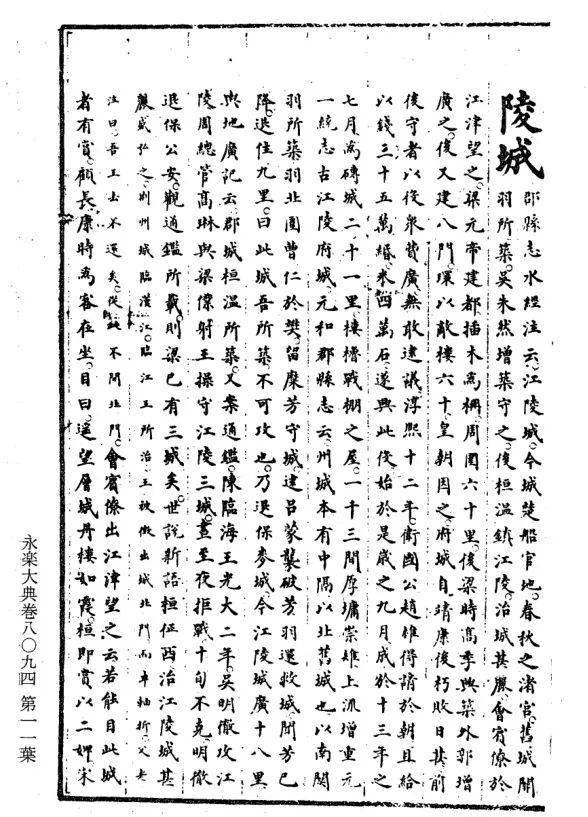 陵城
郡縣志水經注云江陵城今城楚船官地春秋之渚宮舊城關
羽所築吳朱然增築守之後桓溫鎮江陵治城甚麗會賓僚於
江津望之梁元帝建都插木為柵周囘六十里後梁時高季興築外郭增
廣之後又建八門環以敵樓六十皇朝因之府城自靖康後朽敗日甚前
後守者以役衆費廣無敢建議淳熙十二年衛國公趙雄得請於朝且給
以錢三十五萬緡米四萬石遂興此役始於是歲之九月成於十三年之
七月為磚城二十一里樓櫓戰棚之屋一千三間厚墉崇雉上流增重元
一統志古江陵府城元和郡縣志云州城本有中隔以北舊城也以南関
羽所築羽北圍曹仁於樊留糜芳守城逮吕蒙襲破芳羽還救城聞芳已
降退住九里曰此城吾所築不可攻也乃退保麥城今江陵城廣十八里
輿地廣記云郡城桓溫所築又案通鑑陳臨海王光大二年吳明徹攻江
陵周總管高琳與梁僕射王操守江陵三城晝至夜拒戰十旬不克明徹
退保公安觀通鑑所載則梁已有三城矣世說新語桓征西治江陵城甚
麗盛弘之荆州城臨漢江臨江王所治王被徵出城北門而車軸折父老
泣曰吾王去不還矣從此不開北門會賓僚出江津望之云若能目此城
者有賞顧長康時為客在坐目曰遥望層城丹樓如霞桓即賞以二婢宋
永楽大典巻八〇九四 第一一葉